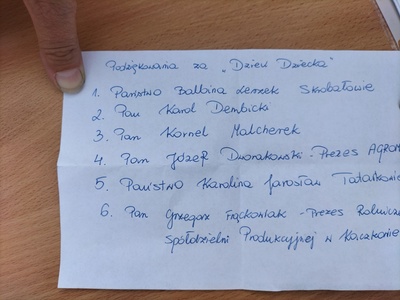 Podziękowania za „Dzień Dziecka"
1. Państwo Balbina Leszek Skrobałowie
2. Pan Karol Dembicki
3. Pan Kornel Malcherek
4. Pan Józef Dworakowski - Prezes AGROM
5. Państwo Karolina Jarosław
6. Pan Grzegorz Frąckowiak - Prezes Rolnicze
Spółdzielni Produkcyjnej w